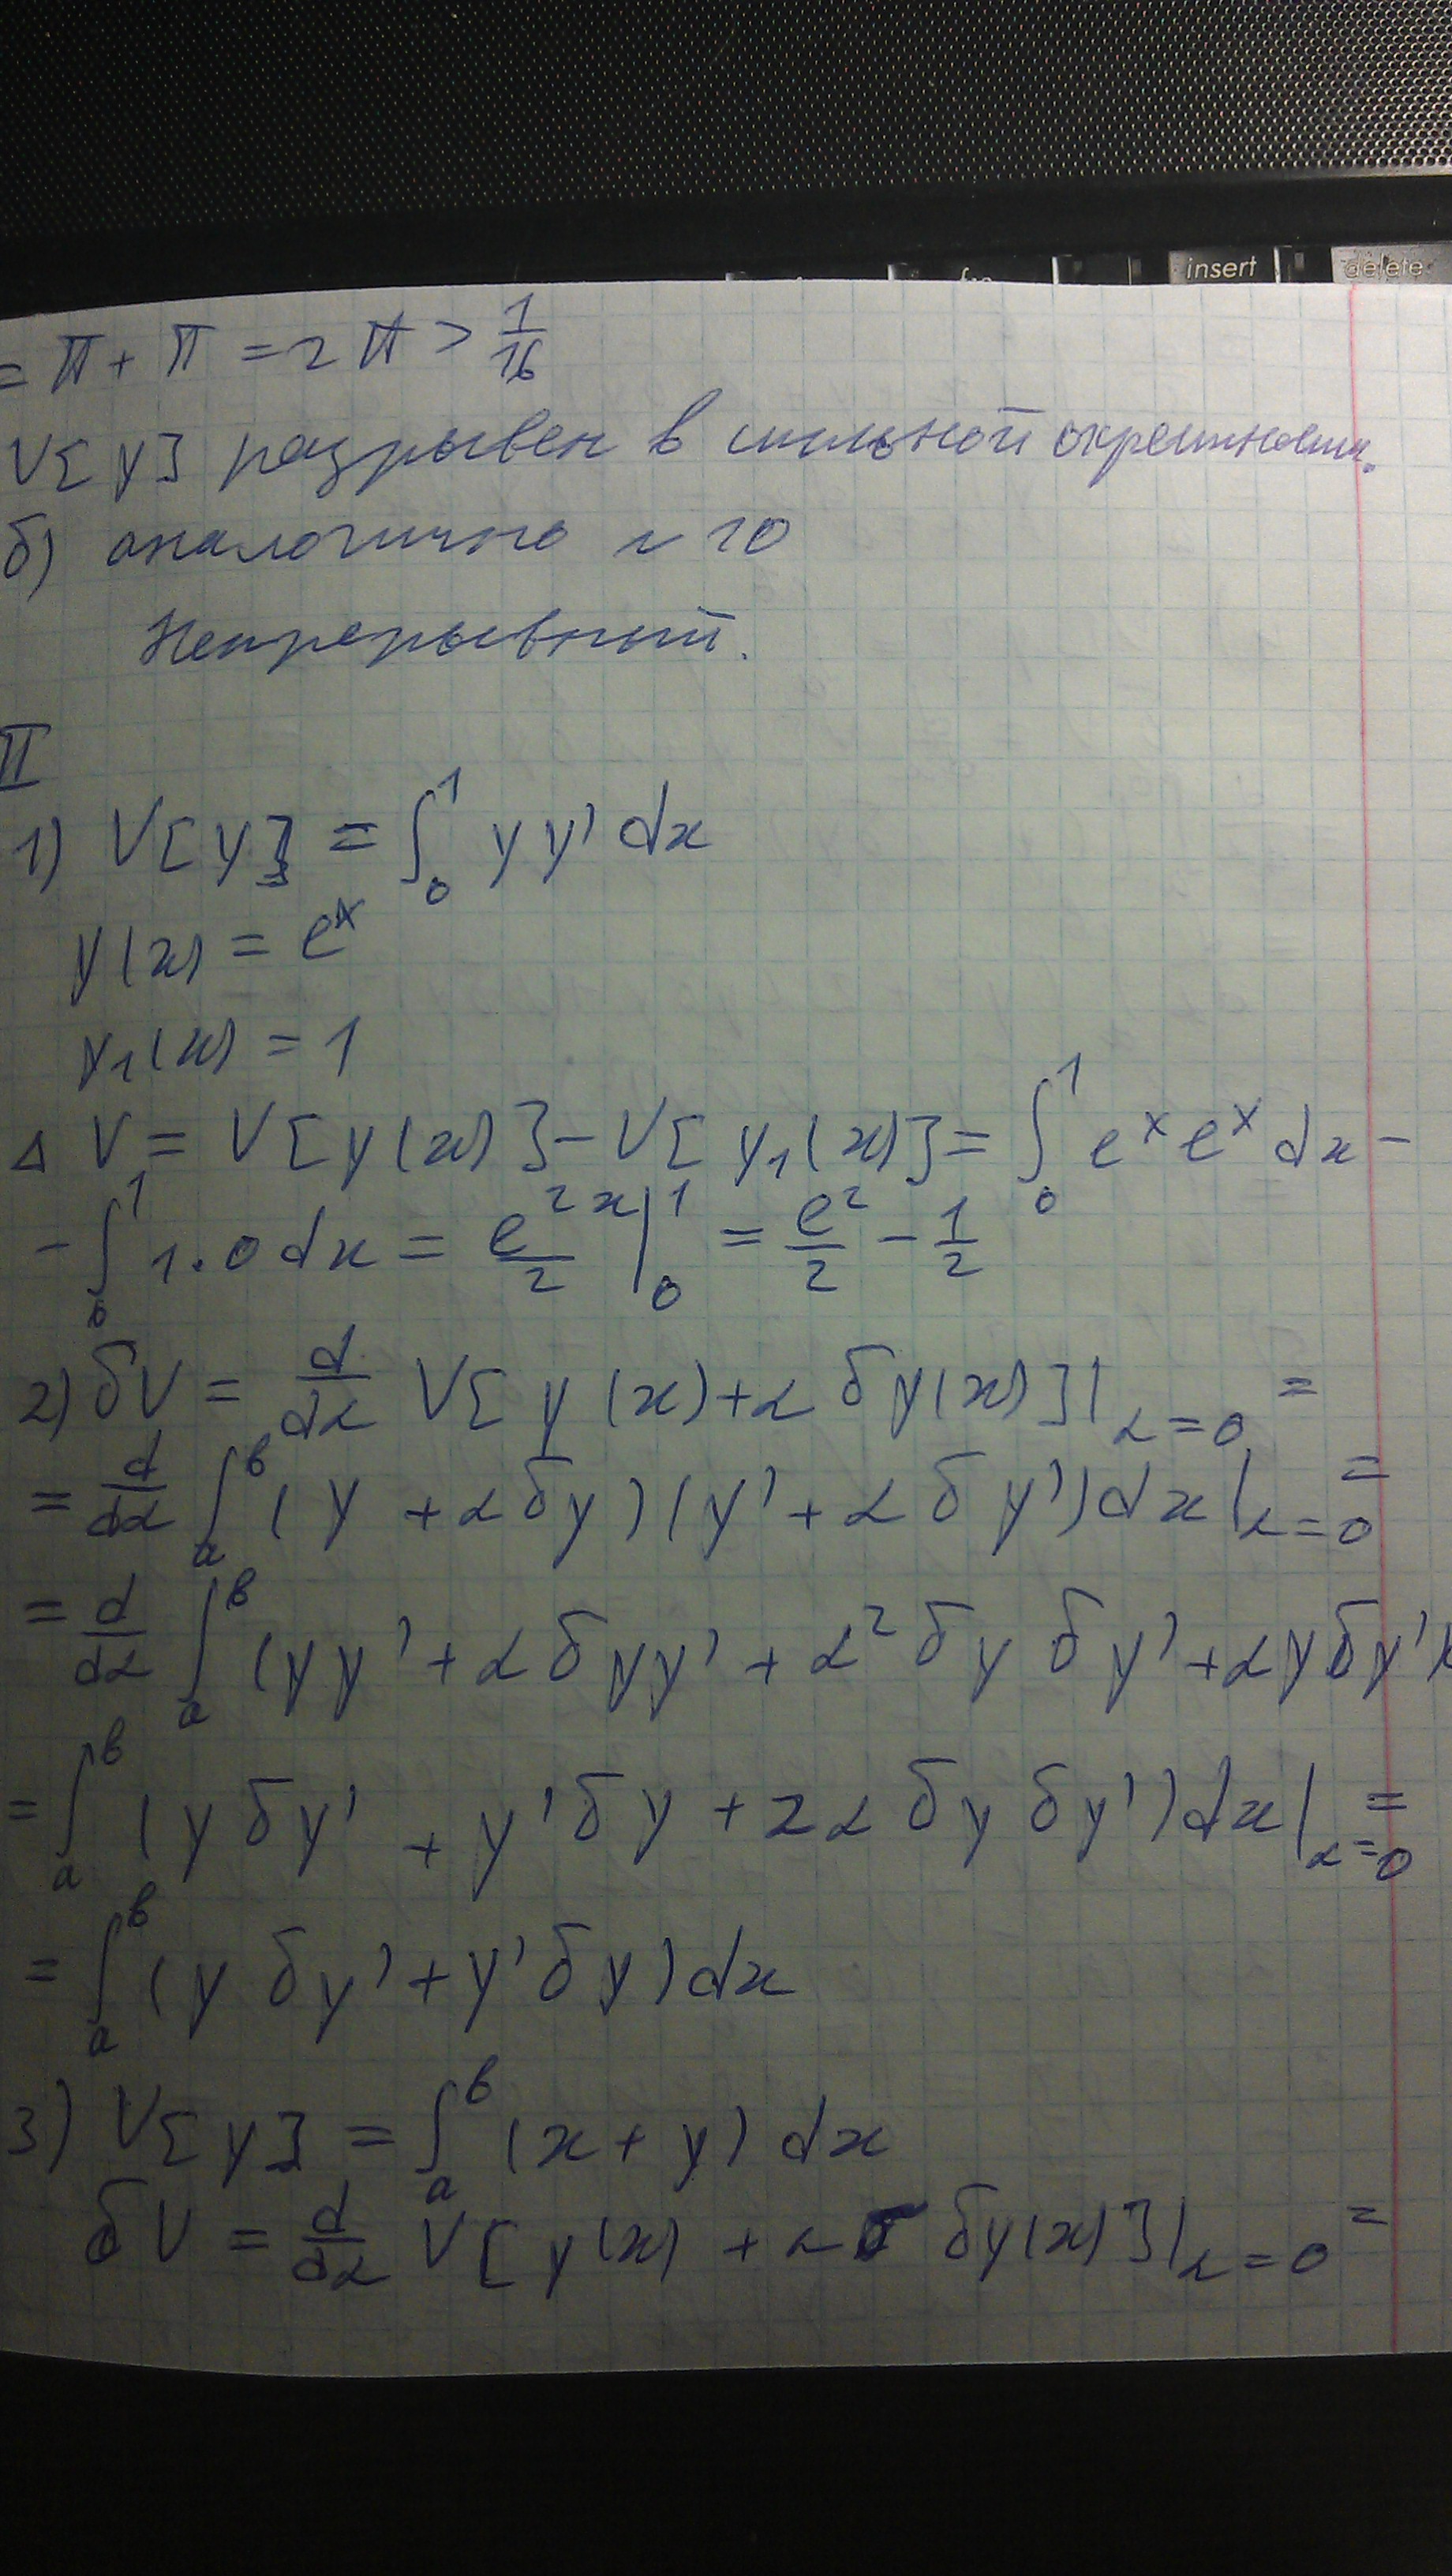 insert
delete
= π + π = 2π > 1/16
V[y] разрывен в сильной окрестности.
б) аналогично № 10
Непрерывный.
II
1) V[y] = ∫₀¹ yy' dx
y(x) = eˣ
y₁(x) = 1
Δ V = V[y(x)] − V[y₁(x)] = ∫₀¹ eˣ eˣ dx −
− ∫₀¹ 1·0 dx = e²ˣ/2 |₀¹ = e²/2 − 1/2
2) δV = d/dα V[y(x) + α δy(x)]|α=0 =
= d/dα ∫ₐᵇ (y + α δy)(y' + α δy') dx|α=0 =
= d/dα ∫ₐᵇ (yy' + α δyy' + α² δy δy' + αy δy')
= ∫ₐᵇ (y δy' + y' δy + 2α δy δy') dx|α=0 =
= ∫ₐᵇ (y δy' + y' δy) dx
3) V[y] = ∫ₐᵇ (x + y) dx
δV = d/dα V[y(x) + α δy(x)]|α=0 =